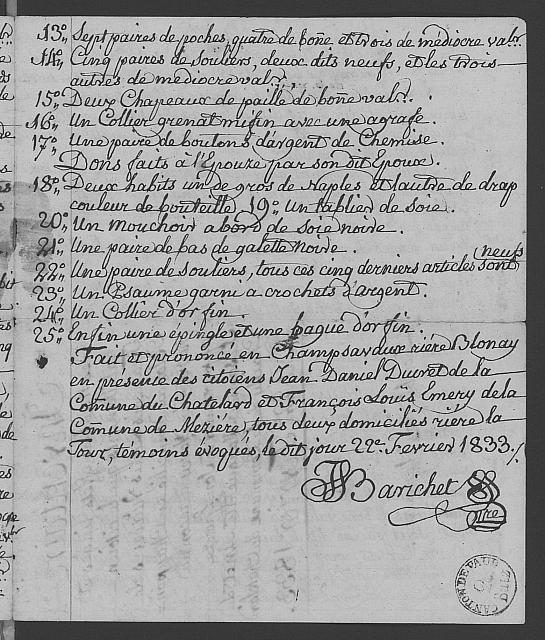 13º„ Sept paires de poches, quatre de boñe et trois de médiocre valr.
14º„ Cinq paires de souliers, deux dits neufs, et les trois
autres de médiocre valr.
15º„ Deux Chapeaux de paille de boñe valr.
16º„ Un Collier grenat mifin avec une agrafe.
17º„ Une paire de boutons d'argent de Chemise.
Dons faits à l'Epouze par son dit Epoux.
18º„ Deux habits un de gros de Naples et l'autre de drap
couleur de bouteille. 19º„ un tablier de soie.
20º„ Un mouchoir a bord de soie noire.
21º„ Une paire de bas de galette Noire.
neufs
22º„ Une paire de souliers, tous ces cinq derniers articles sont
23º„ Un Psaume garni a crochets d'argent.
24º„ Un Collier d'or fin.
25º„ Enfin une épingle et une bague d'or fin.
Fait et prononcé en Champsavaux rière Blonay
en présence des citoiens Jean Daniel Ducret de la
Comune du Chatelard et François Louïs Emery de la
Comune de Mezière, tous deux domiciliés rière la
Tour, témoins évoqués, le dit jour 22e. Fevrier 1833./.
Barichet
Nre
CANTON DE VAUD